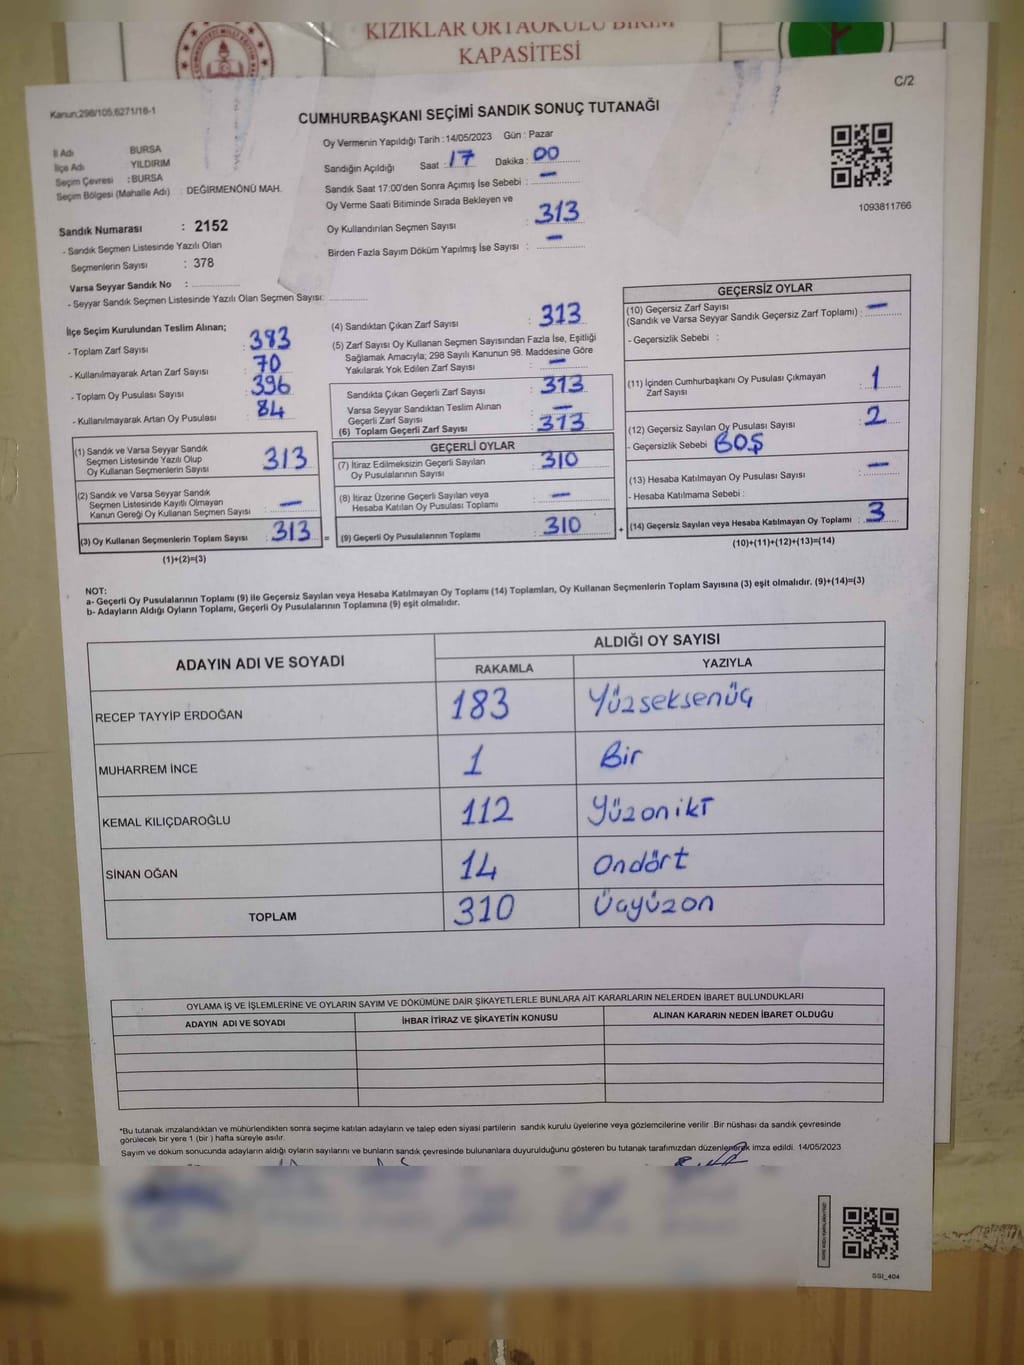 KIZIKLAR ORTAOKULU BİRİM
KAPASİTESİ
C/2
Kanun;298/105,6271/18-1
CUMHURBAŞKANI SEÇİMİ SANDIK SONUÇ TUTANAĞI
İl Adı BURSA
İlçe Adı YILDIRIM
Seçim Çevresi : BURSA
Seçim Bölgesi (Mahalle Adı) : DEĞİRMENÖNÜ MAH.
Sandık Numarası : 2152
- Sandık Seçmen Listesinde Yazılı Olan
Seçmenlerin Sayısı : 378
Varsa Seyyar Sandık No :
- Seyyar Sandık Seçmen Listesinde Yazılı Olan Seçmen Sayısı:
Oy Vermenin Yapıldığı Tarih : 14/05/2023 Gün : Pazar
Sandığın Açıldığı Saat : 17 Dakika : 00
Sandık Saat 17:00'den Sonra Açımış İse Sebebi : —
Oy Verme Saati Bitiminde Sırada Bekleyen ve
Oy Kullandırılan Seçmen Sayısı : 313
Birden Fazla Sayım Döküm Yapılmış İse Sayısı : —
1093811766
İlçe Seçim Kurulundan Teslim Alınan;
- Toplam Zarf Sayısı : 383
- Kullanılmayarak Artan Zarf Sayısı : 70
- Toplam Oy Pusulası Sayısı : 396
- Kullanılmayarak Artan Oy Pusulası : 84
(1) Sandık ve Varsa Seyyar Sandık
Seçmen Listesinde Yazılı Olup
Oy Kullanan Seçmenlerin Sayısı : 313
(2) Sandık ve Varsa Seyyar Sandık
Seçmen Listesinde Kayıtlı Olmayan
Kanun Gereği Oy Kullanan Seçmen Sayısı : —
(3) Oy Kullanan Seçmenlerin Toplam Sayısı : 313
(1)+(2)=(3)
(4) Sandıktan Çıkan Zarf Sayısı : 313
(5) Zarf Sayısı Oy Kullanan Seçmen Sayısından Fazla İse, Eşitliği
Sağlamak Amacıyla; 298 Sayılı Kanunun 98. Maddesine Göre
Yakılarak Yok Edilen Zarf Sayısı : —
Sandıkta Çıkan Geçerli Zarf Sayısı : 313
Varsa Seyyar Sandıktan Teslim Alınan
Geçerli Zarf Sayısı : —
(6) Toplam Geçerli Zarf Sayısı : 313
GEÇERLİ OYLAR
(7) İtiraz Edilmeksizin Geçerli Sayılan
Oy Pusulalarının Sayısı : 310
(8) İtiraz Üzerine Geçerli Sayılan veya
Hesaba Katılan Oy Pusulası Toplamı : —
= (9) Geçerli Oy Pusulalarının Toplamı : 310
GEÇERSİZ OYLAR
(10) Geçersiz Zarf Sayısı
(Sandık ve Varsa Seyyar Sandık Geçersiz Zarf Toplamı) : —
- Geçersizlik Sebebi :
(11) İçinden Cumhurbaşkanı Oy Pusulası Çıkmayan
Zarf Sayısı : 1
(12) Geçersiz Sayılan Oy Pusulası Sayısı : 2
- Geçersizlik Sebebi : BOŞ
(13) Hesaba Katılmayan Oy Pusulası Sayısı : —
- Hesaba Katılmama Sebebi :
+ (14) Geçersiz Sayılan veya Hesaba Katılmayan Oy Toplamı : 3
(10)+(11)+(12)+(13)=(14)
NOT:
a- Geçerli Oy Pusulalarının Toplamı (9) ile Geçersiz Sayılan veya Hesaba Katılmayan Oy Toplamı (14) Toplamları, Oy Kullanan Seçmenlerin Toplam Sayısına (3) eşit olmalıdır. (9)+(14)=(3)
b- Adayların Aldığı Oyların Toplamı, Geçerli Oy Pusulalarının Toplamına (9) eşit olmalıdır.
ADAYIN ADI VE SOYADI ALDIĞI OY SAYISI
RAKAMLA YAZIYLA
RECEP TAYYİP ERDOĞAN 183 Yüzseksenüç
MUHARREM İNCE 1 Bir
KEMAL KILIÇDAROĞLU 112 Yüzoniki
SİNAN OĞAN 14 Ondört
TOPLAM 310 Üçyüzon
OYLAMA İŞ VE İŞLEMLERİNE VE OYLARIN SAYIM VE DÖKÜMÜNE DAİR ŞİKAYETLERLE BUNLARA AİT KARARLARIN NELERDEN İBARET BULUNDUKLARI
ADAYIN ADI VE SOYADI İHBAR İTİRAZ VE ŞİKAYETİN KONUSU ALINAN KARARIN NEDEN İBARET OLDUĞU
*Bu tutanak imzalandıktan ve mühürlendikten sonra seçime katılan adayların ve talep eden siyasi partilerin sandık kurulu üyelerine veya gözlemcilerine verilir .Bir nüshası da sandık çevresinde
görülecek bir yere 1 (bir ) hafta süreyle asılır.
Sayım ve döküm sonucunda adayların aldığı oyların sayılarını ve bunların sandık çevresinde bulunanlara duyurulduğunu gösteren bu tutanak tarafımızdan düzenlenerek imza edildi. 14/05/2023
SSI_404